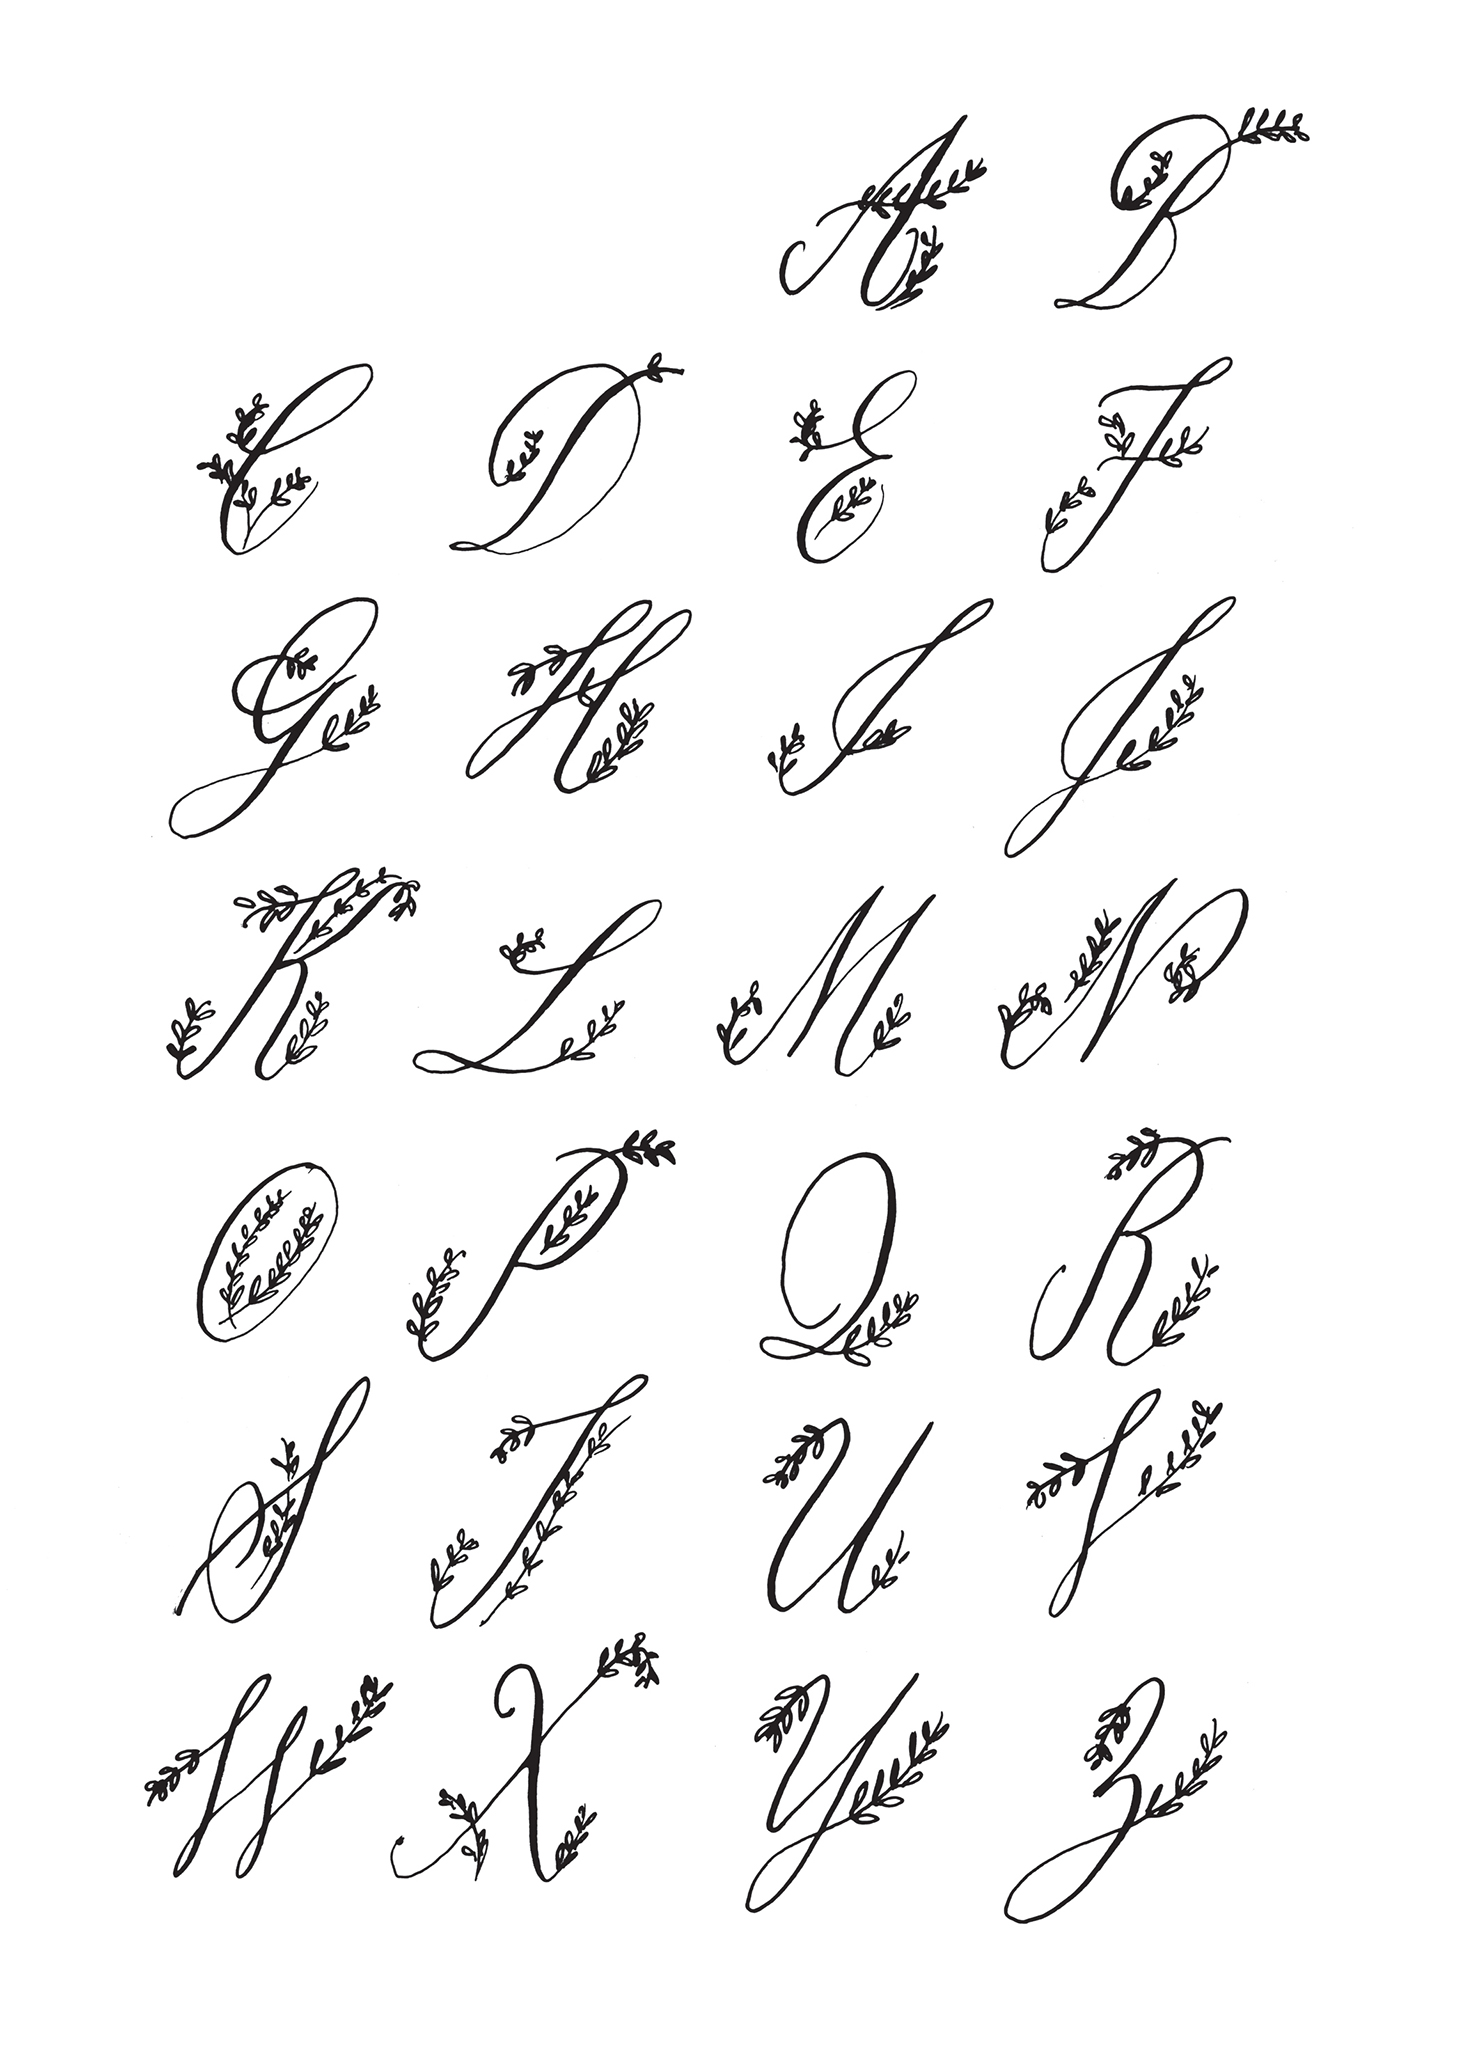 A B
C D E F
G H I J
K L M N
O P Q R
S T U V
W X Y Z